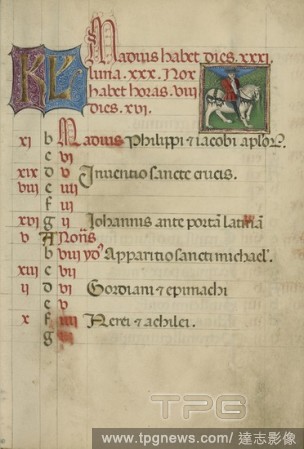 KL Madius habet dies. xxxi.
luna. xxx. Nox
habet horas. viii
dies. xvi.
xi b Madius Philippi & iacobi aplor.
c vi
xix d v Inventio sancte crucis.
viii e iiii
f iii
xvi g ii Johannis ante portā latinā
v A Noñs
b viii yd' Apparitio sancti michael'.
xiii c vii
ii d vi Gordiani & epimachi
e v
x f iiii Nerei & achilei.
g iii
TPG
www.tpgnews.com/ 達志影像